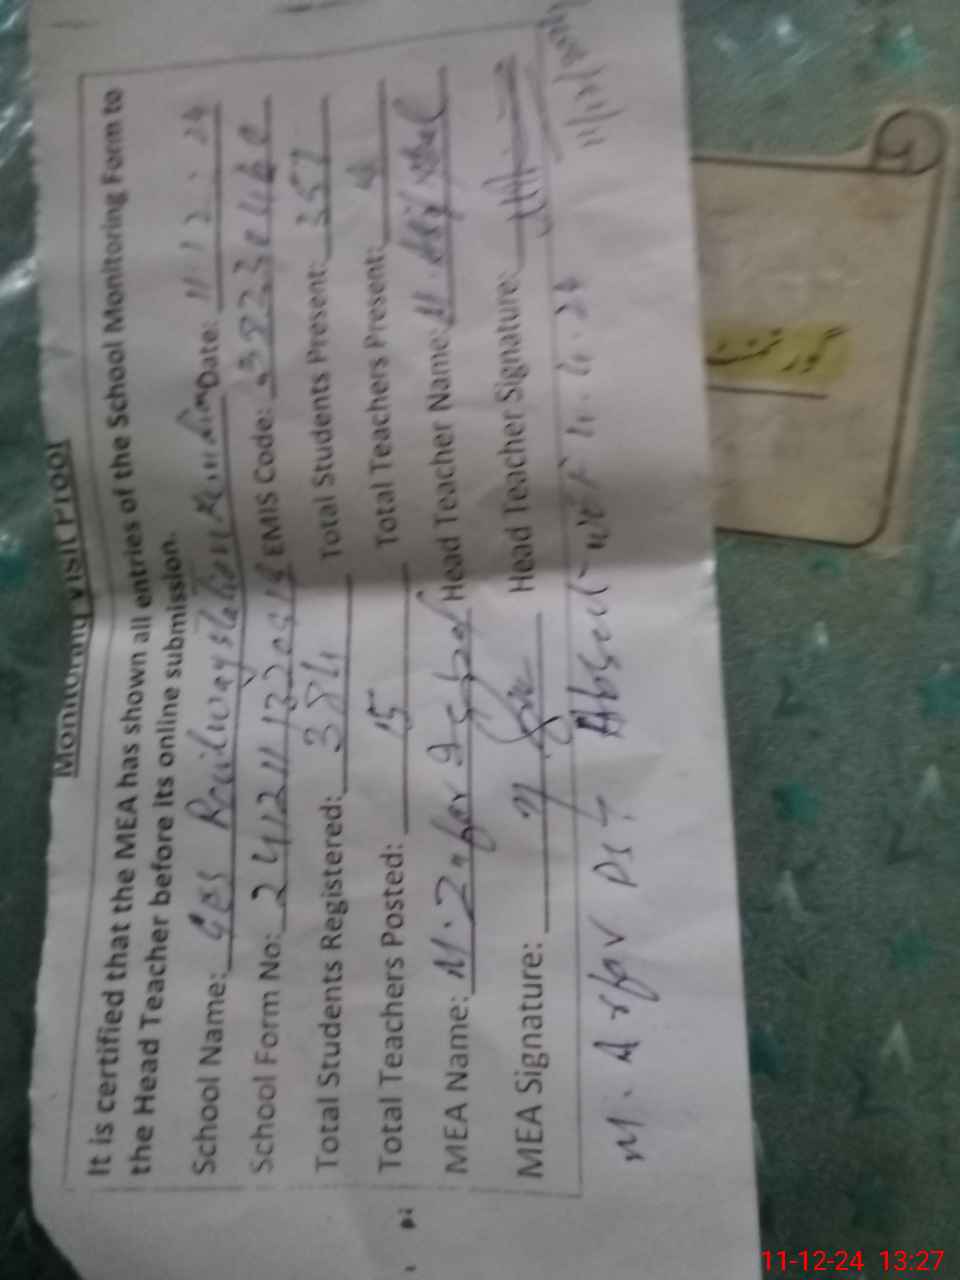 Monitoring Visit Proof
It is certified that the MEA has shown all entries of the School Monitoring Form to
the Head Teacher before its online submission.
School Name: Railway Station Date: 11.12.24
School Form No: EMIS Code:
Total Students Registered: 384 Total Students Present: 357
Total Teachers Posted: 15 Total Teachers Present:
MEA Name: M. Zafar Iqbal Head Teacher Name: M.
MEA Signature: Head Teacher Signature:
11/12/2024
M. Asfar PST Absent w.e.f 4.4.24
گورنمنٹ
11-12-24 13:27